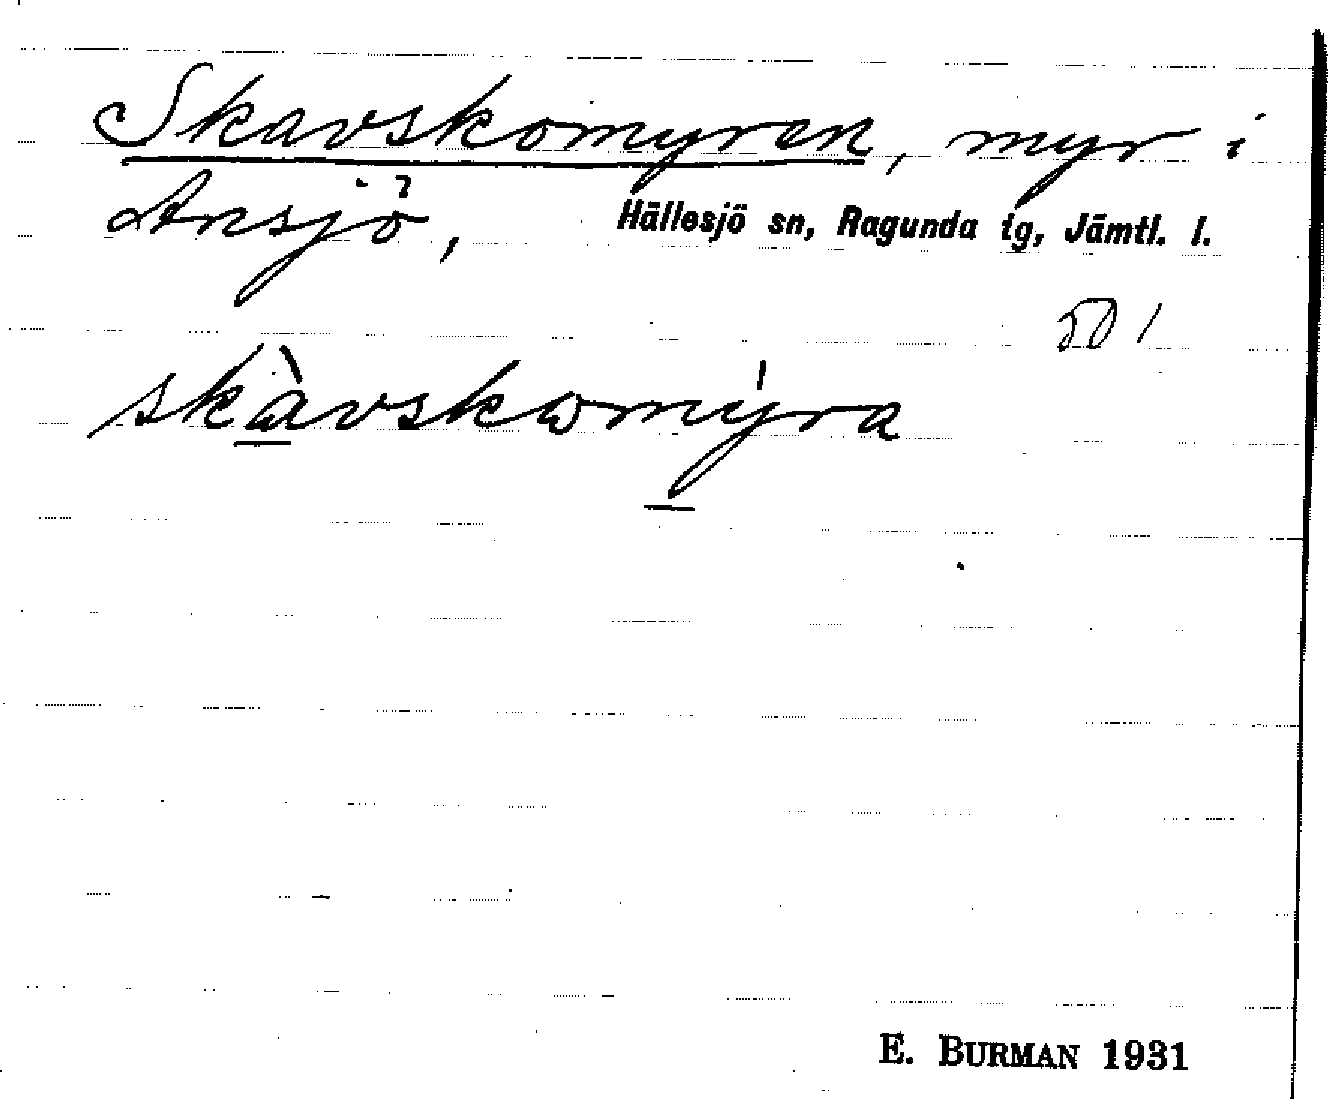 Skavskomyren, myr i
Ansjö, Hällesjö sn, Ragunda tg, Jämtl. l.
skàvskωmýra
E. BURMAN 1931